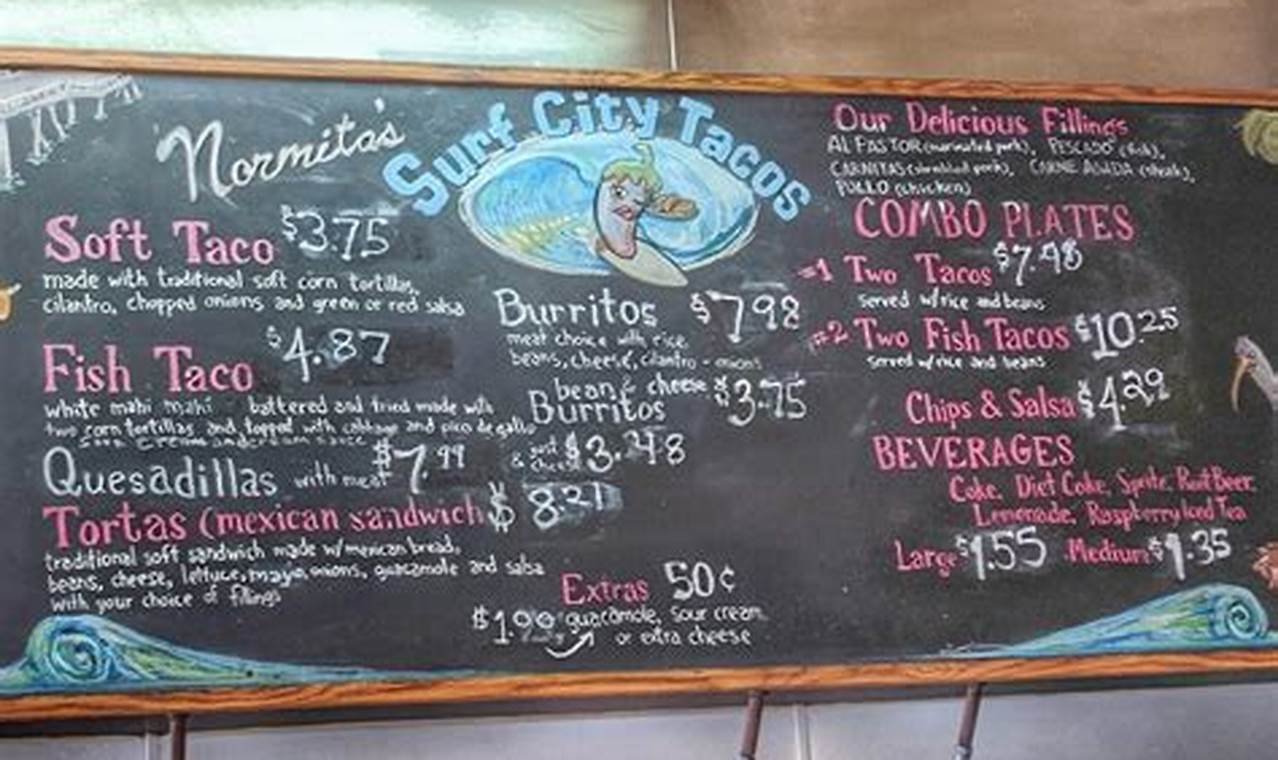 Normita's
Surf City Tacos
Soft Taco $3.75
made with traditional soft corn tortillas,
cilantro, chopped onions and green or red salsa
Fish Taco $4.87
white mahi mahi battered and fried made with
two corn tortillas and topped with cabbage and pico de gallo
sour cream and cream sauce
Quesadillas with meat $7.99
& just cheese $3.48
Tortas (mexican sandwich $8.21
traditional soft sandwich made w/mexican bread,
beans, cheese, lettuce, mayo, onions, guacamole and salsa
with your choice of fillings
Burritos $798
meat choice with rice
beans, cheese, cilantro - onions
bean & cheese $3.75
Burritos
Extras 50¢
$1.00 guacamole, sour cream
or extra cheese
Our Delicious Fillings
AL PASTOR (marinated pork), PESCADO (fish),
CARNITAS (shredded pork), CARNE ASADA (steak),
POLLO (chicken)
COMBO PLATES
#1 Two Tacos $7.98
served w/rice and beans
#2 Two Fish Tacos $10.25
served w/rice and beans
Chips & Salsa $4.29
BEVERAGES
Coke, Diet Coke, Sprite, Root Beer
Lemonade, Raspberry Iced Tea
Large $1.55 Medium $1.35